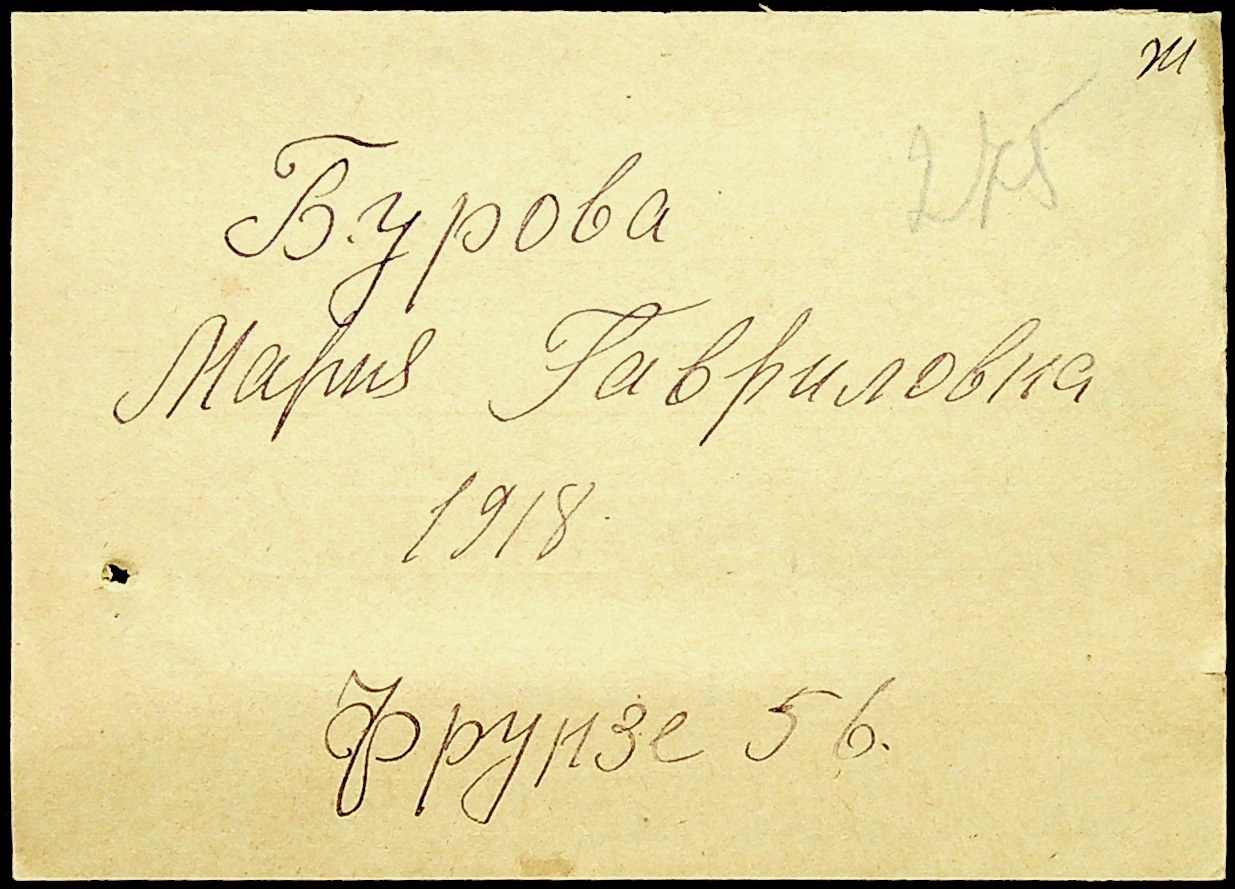 ж
275
Бурова
Мария Гавриловна
1918
Фрунзе 56.